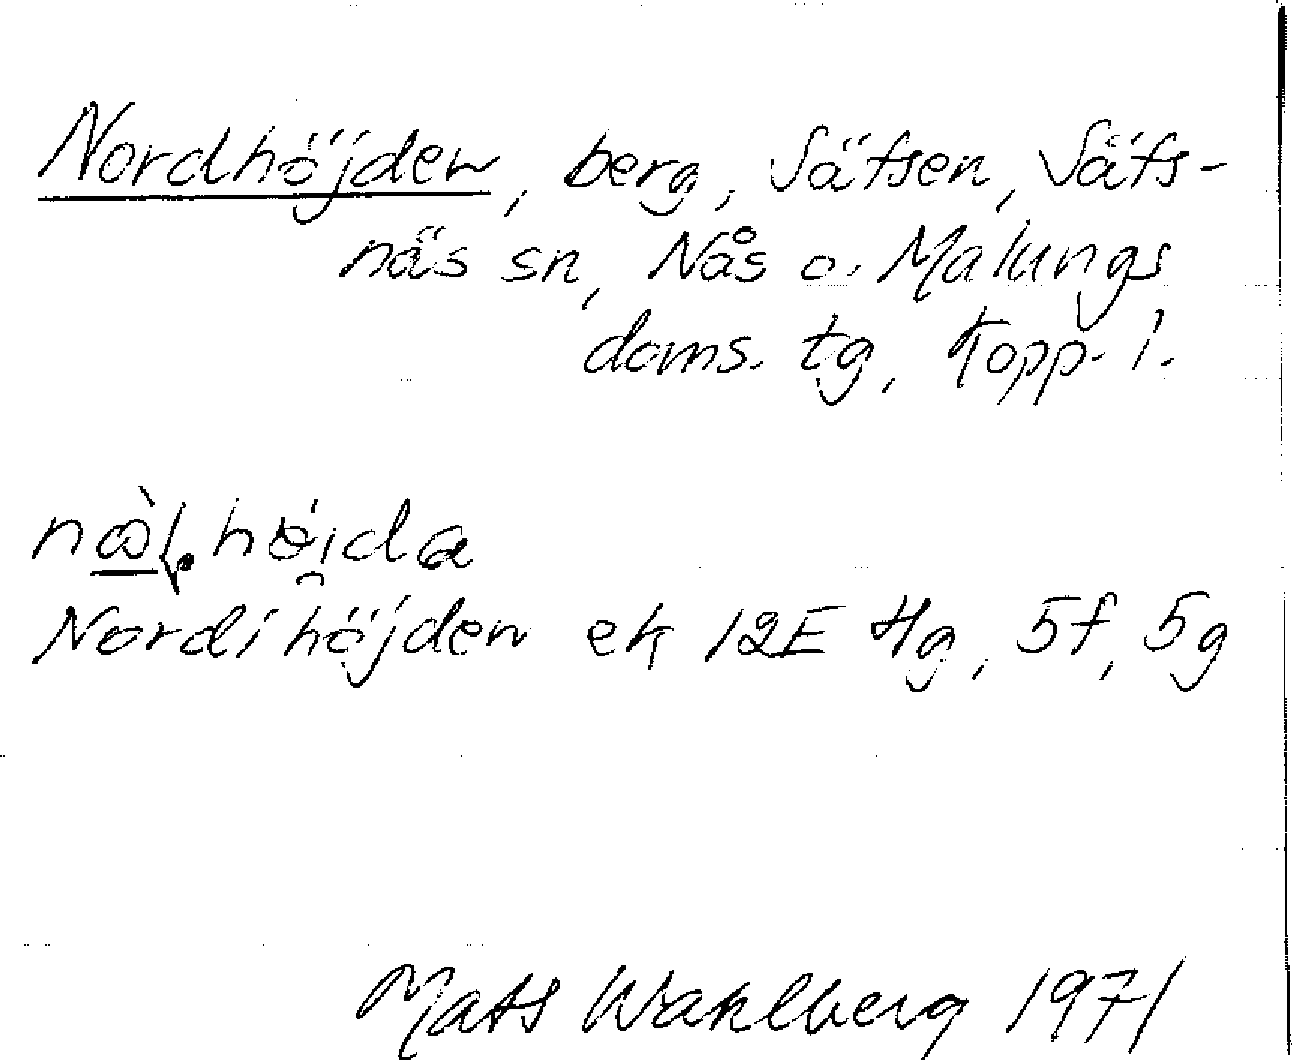 Nordhöjden, berg, Sätsen, Säfs-
näs sn, Nås o. Malungs
doms. tg, Kopp. l.
Nordi höjden ek 12E 4g, 5f, 5g
Mats Wahlberg 1971